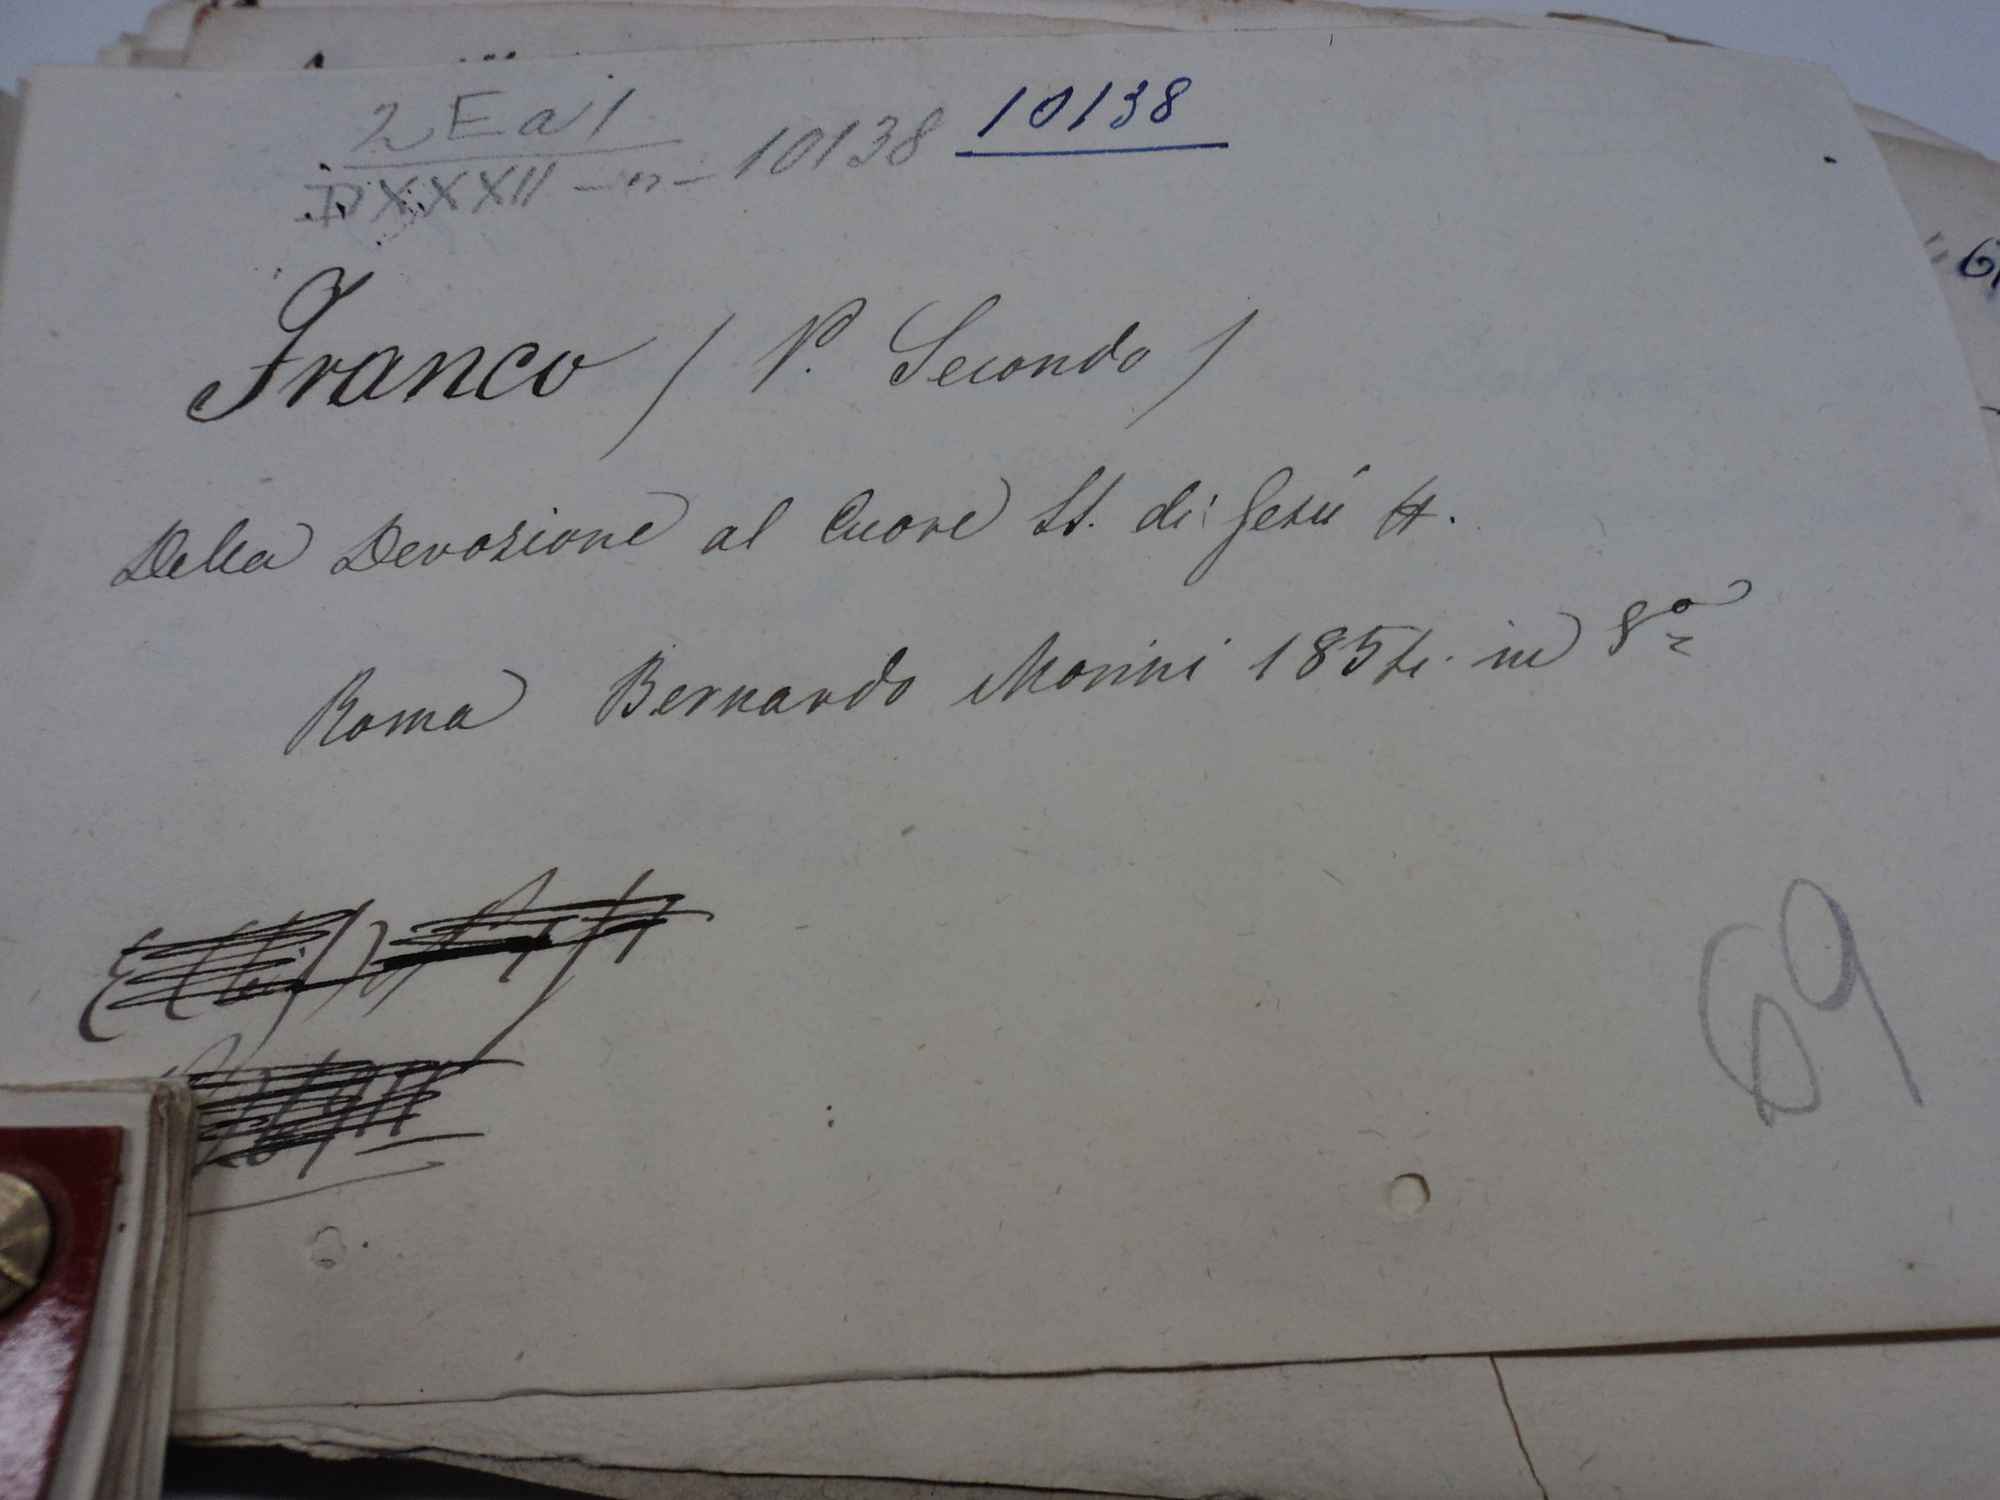 2 E a 1
DXXXII - " - 10138 10138
Franco / P. Secondo /
Della Devozione al Cuore SS. di Gesù &.
Roma Bernardo Morini 1854. in 8º
69